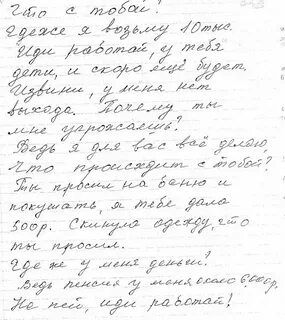 Что с тобой?
Где же я возьму 10 тыс.
Иди работай, у тебя
дети, и скоро ещё будет.
Извини, у меня нет
выхода. Почему ты
мне угрожаешь?
Ведь я для вас всё делаю,
Что происходит с тобой?
Ты просил на баню и
покушать, я тебе дала
500р. Скинула одежду, что
ты просил.
Где же у меня деньги?
Ведь пенсия у меня около
Не пей, иди работай!